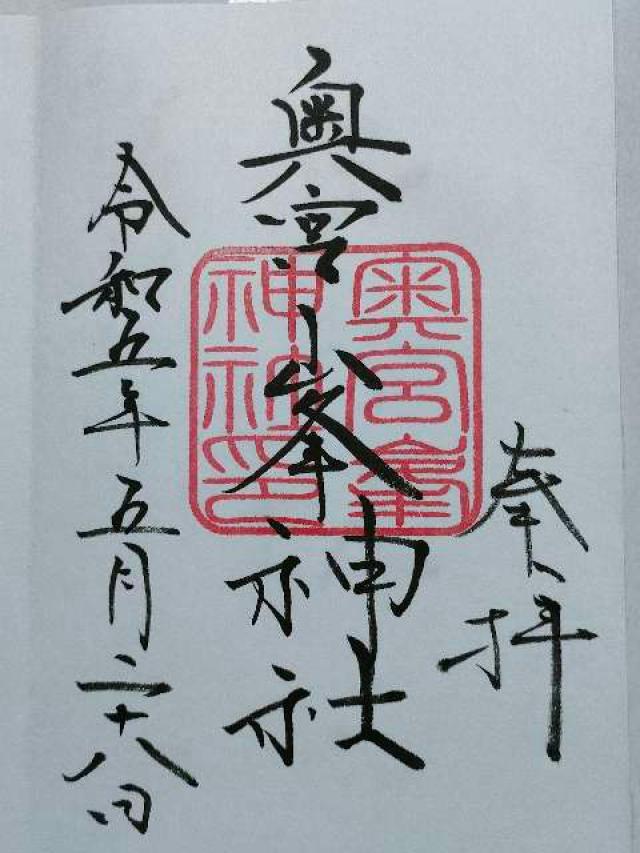 奉拝
奥宮峯神社
奥宮峯
神社印
令和五年五月二十八日